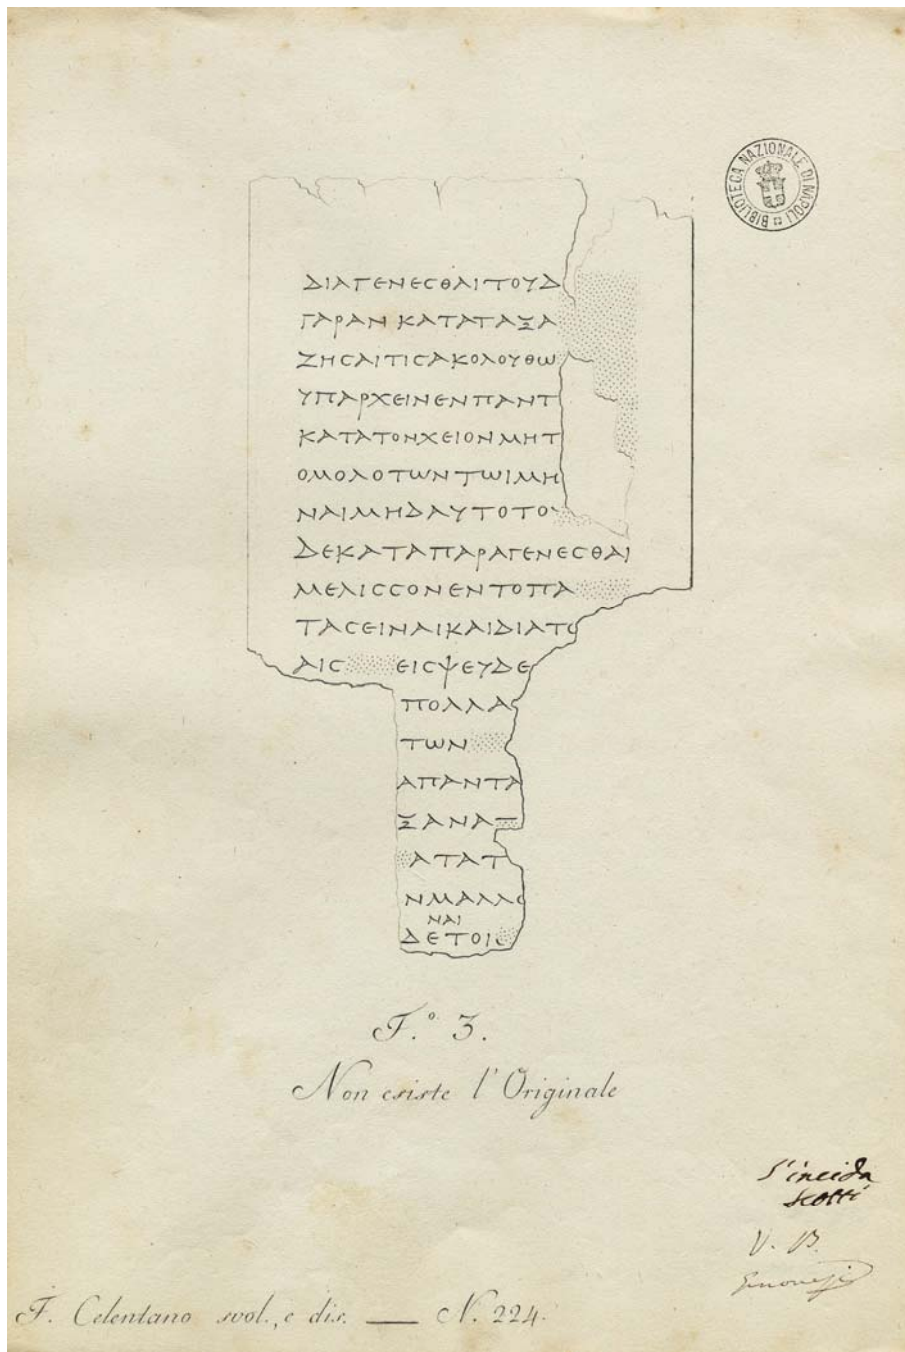 BIBLIOTECA NAZIONALE DI NAPOLI
ΔΙΑΓΕΝΕϹΘΑΙΤΟΥΔ
ΓΑΡΑΝ ΚΑΤΑΤΑΞΑ
ΖΗϹΑΙΤΙϹΑΚΟΛΟΥΘΩ
ΥΠΑΡΧΕΙΝΕΝΠΑΝΤ
ΚΑΤΑΤΟΝΧΕΙΟΝΜΗΤ
ΟΜΟΛΟΤΩΝΤΩΙΜΗ
ΝΑΙΜΗΔΑΥΤΟΤΟΥ
ΔΕΚΑΤΑΠΑΡΑΓΕΝΕϹΘΑΙ
ΜΕΛΙϹϹΟΝΕΝΤΟΠΑ
ΤΑϹΕΙΝΑΙΚΑΙΔΙΑΤΟ
ΑΙϹ ΕΙϹΨΕΥΔΕ
ΠΟΛΛΑ
ΤΩΝ
ΑΠΑΝΤΑ
ΞΑΝΑΠ
ΑΤΑΤ
ΝΜΑΛΛΟ
ΝΑΙ
ΔΕΤΟΙϹ
F.º 3.
Non esiste l' Originale
S'incida
Scotti
V. B.
Genovesi
F. Celentano svol., e dis. — N. 224.